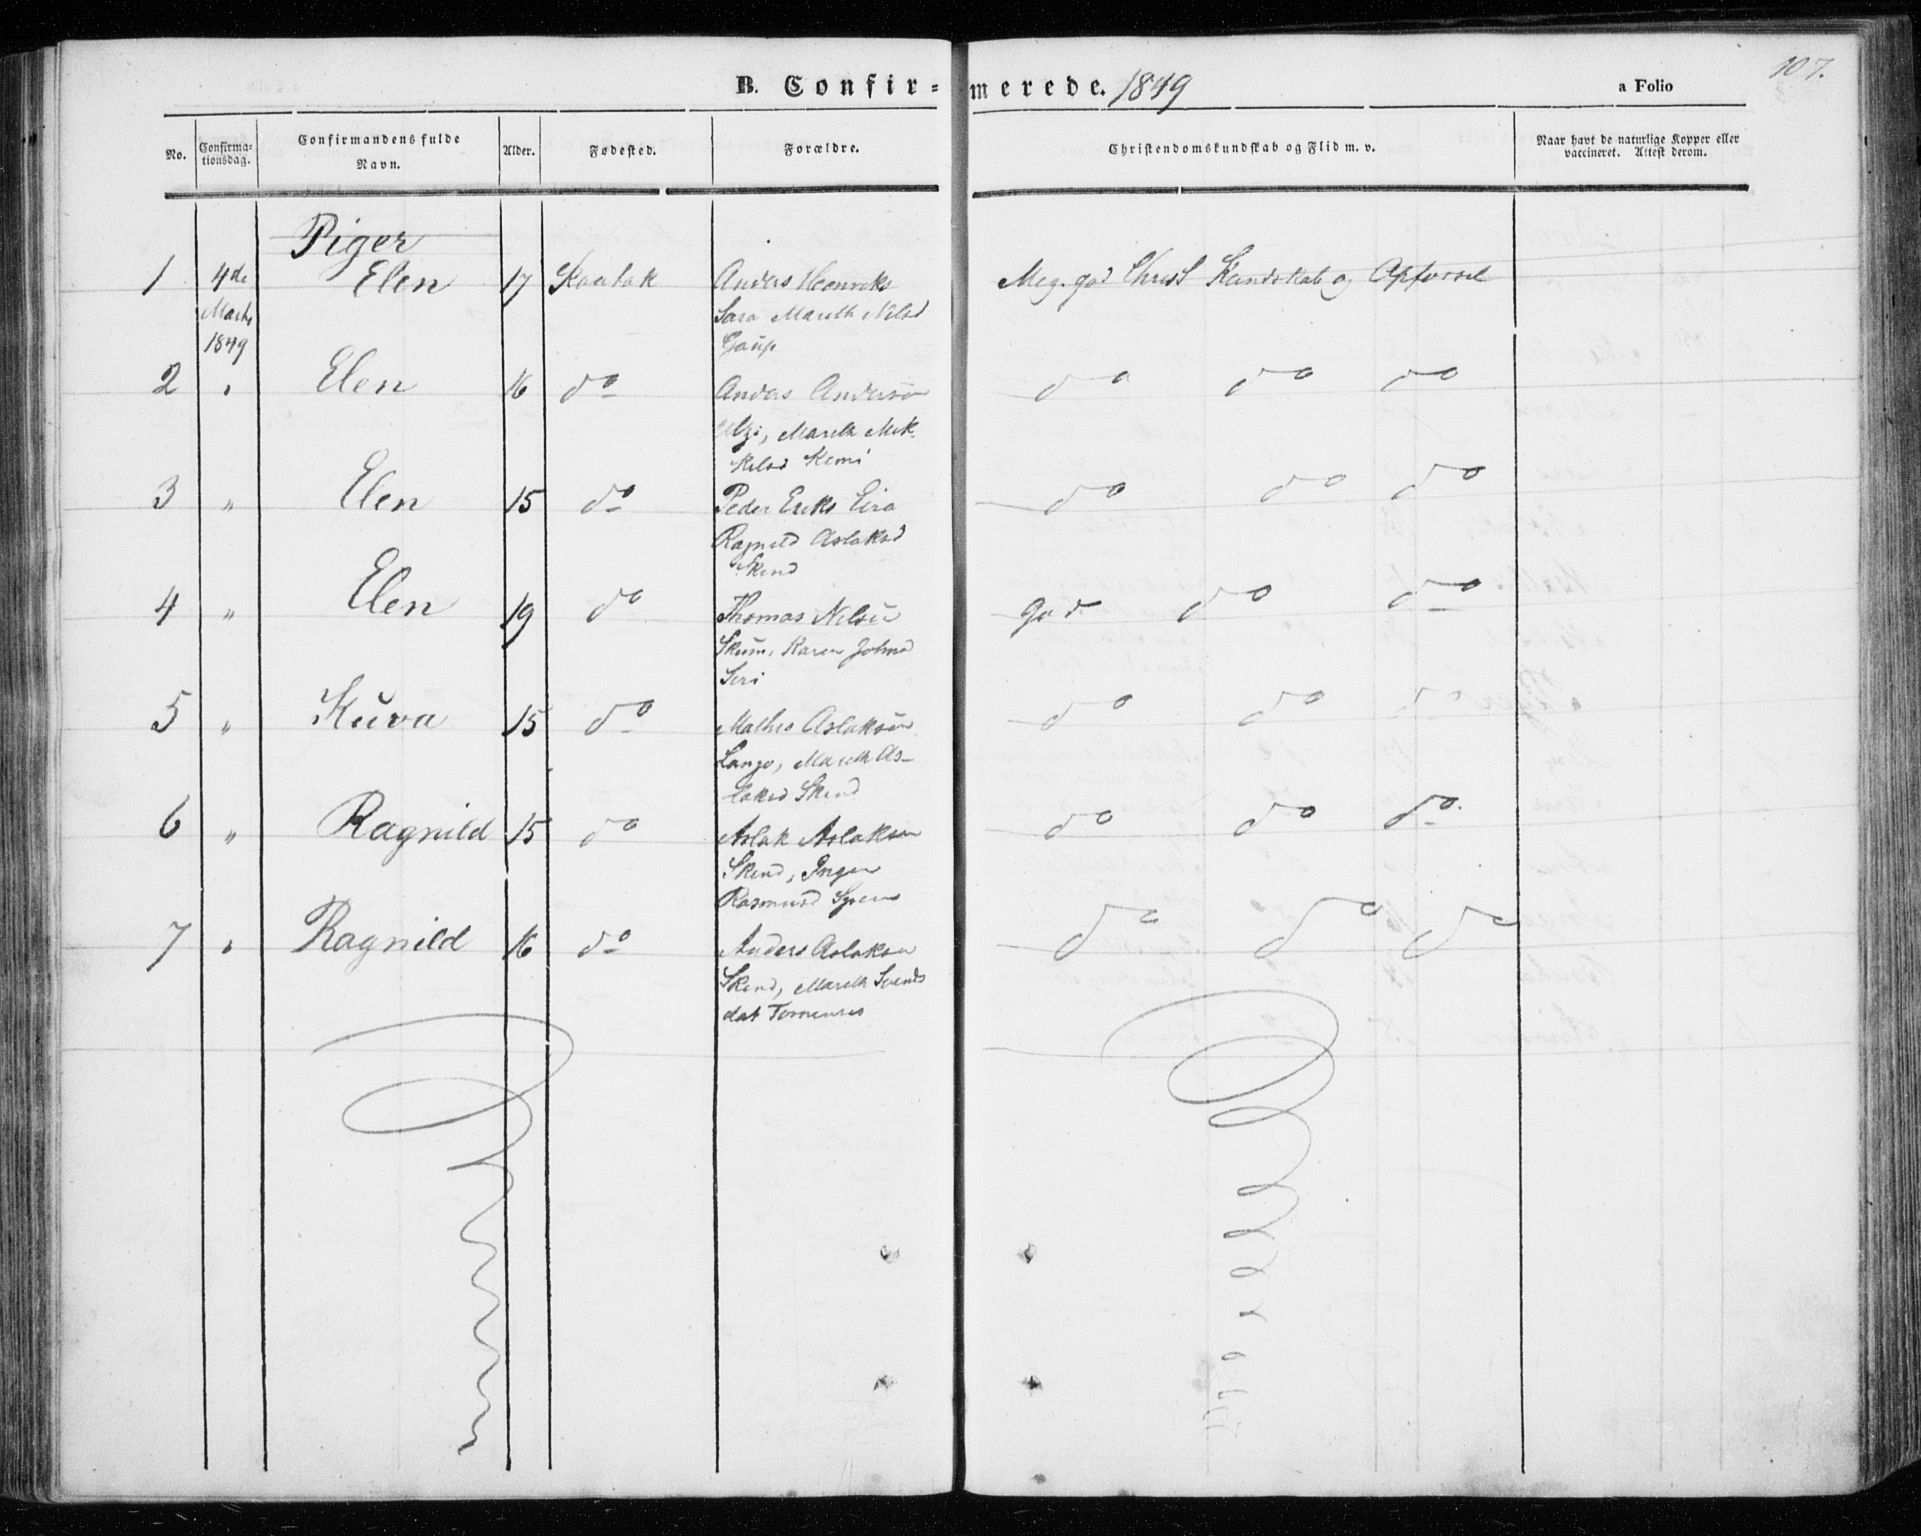 107.
B. Confir=merede. 1849
a Folio
No.
Confirma-
tionsdag.
Confirmandens fulde
Navn.
Alder.
Fødested.
Forældre.
Christendomskundskab og Flid m. v.
Naar havt de naturlige Kopper eller
vaccineret. Attest derom.
Piger
1 4de Elen 17 Kautok Anders Henriks Meg. god Christ Kundskab og Opførsel
Marts Sara Mareth Nilsd
1849 Gaup
2 " Elen 16 do Anders Andersøn do do do
Utzi, Mareth Mik-
kelsd Kemi
3 " Elen 15 do Peder Eriks Eira do do do
Ragnild Aslaksd
Skend
4 " Elen 19 do Thomas Nilsen god do do
Skum, Karen Johnsd
Siri
5 " Kuva 15 do Mathis Aslaksøn do do do
Lango, Mareth As-
laksd Skend
6 " Ragnild 15 do Aslak Aslaksen do do do.
Skend, Inger
Rasmusd
7 " Ragnild 16 do Anders Aslaksen do do do
Skend, Mareth Svends
dat Tornensis